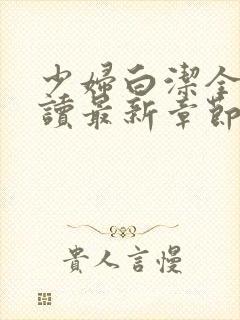 少婦白潔全
讀最新章節
貴人言慢